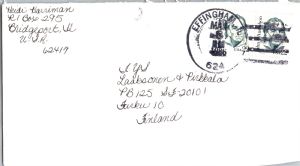 Heidi Harriman
R1 Box 295
Bridgeport, Il
U.S.A.
62419
EFFINGHAM
MAY
624
Laaksonen & Pirkkala
PB 125 SF-20101
Turku 10
Finland